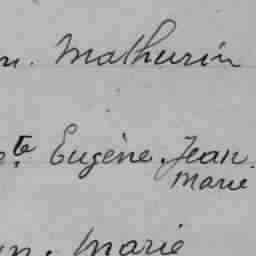 n. Mathurin
te Eugène, Jean
Marie
n. Marie